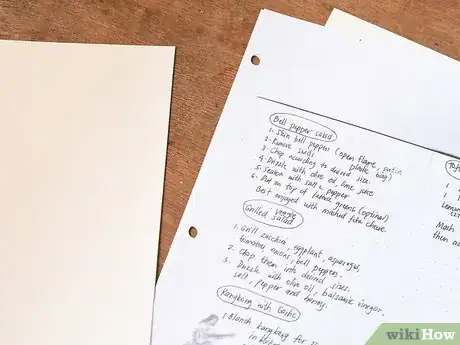 Bell pepper salad
1. Skin bell peppers (open flame, put in plastic bag)
2. Remove seeds
3. Chop according to desired size.
4. Drizzle with olive oil, lime juice
5. Season with salt & pepper
6. Put on top of lettuce greens (optional)
Best enjoyed with mashed feta cheese.
Grilled veggie salad
1. Grill zucchini, eggplant, asparagus, tomatoes, onions, bell peppers.
2. Chop them into desired sizes.
3. Drizzle with olive oil, balsamic vinegar, salt, pepper and honey.
Kangkong with Garlic
1. Blanch kangkong for
in
1
1
Lemon
Mash
then
wikiHow